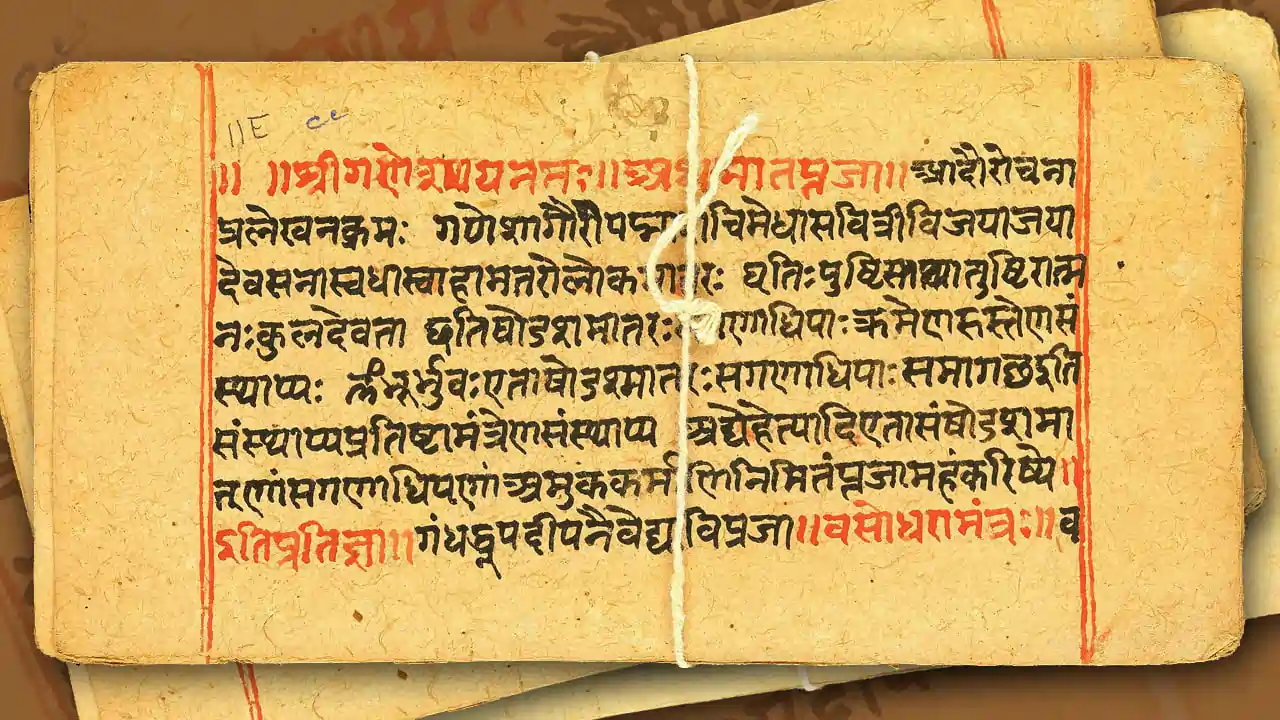 ॥ ॥श्रीगणेशायनमः॥ ॥आदौरोचना
प्रलेखनक्रमः गणेशागौरीपद्मा चिमेधासवित्रीविजयाजया
देवसेनास्वधास्वाहामातरोलोक धृतिःपुष्टिस्तथातुष्टिरात्म
नःकुलदेवता धृतिषोडशमातरः क्रमेणहस्तेणसं
स्थाप्यः एताषोडशमातरःसगणाधिपाः
संस्थाप्यप्रतिष्टामंत्रेणसंस्थाप्य अद्येहेत्यादिएतासंषोडशमा
तृणांसगणाधिपणांअमुककर्मणिनिमितंपूजामहंकरिष्ये॥
इतिप्रतिज्ञा॥गंधधूपदीपनैवेद्य ॥वसोधरामंत्रः॥व